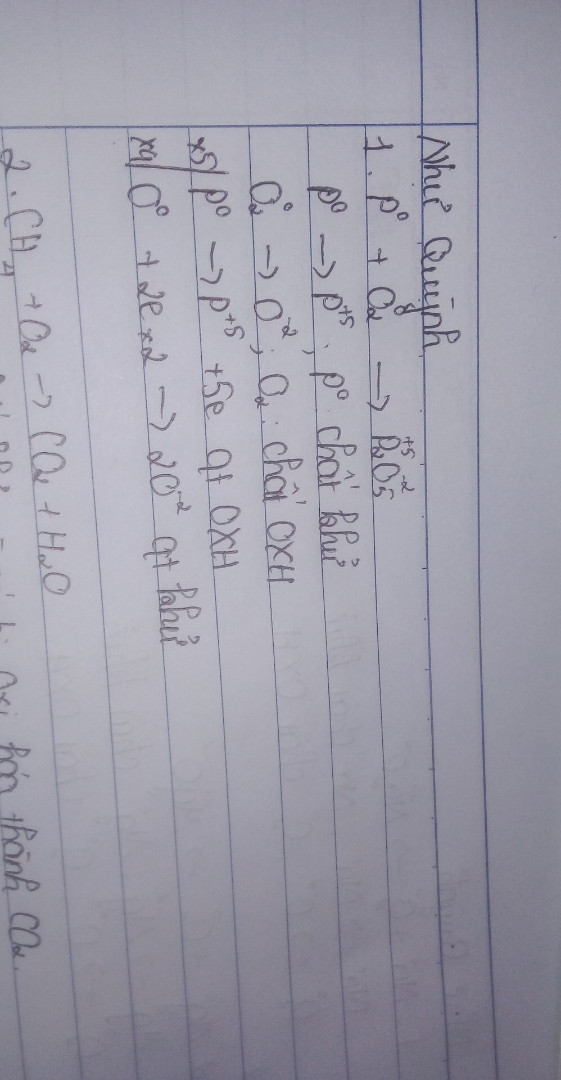 Như Quỳnh
1. P⁰ + O₂⁰ → P₂⁺⁵O₅⁻²
P⁰ → P⁺⁵, P⁰: chất khử
O₂⁰ → O⁻², O₂: chất OXH
x5| P⁰ → P⁺⁵ + 5e qt OXH
x4| O⁰ + 2e x2 → 2O⁻² qt khử
2. CH₄ + O₂ → CO₂ + H₂O
thành CO₂.